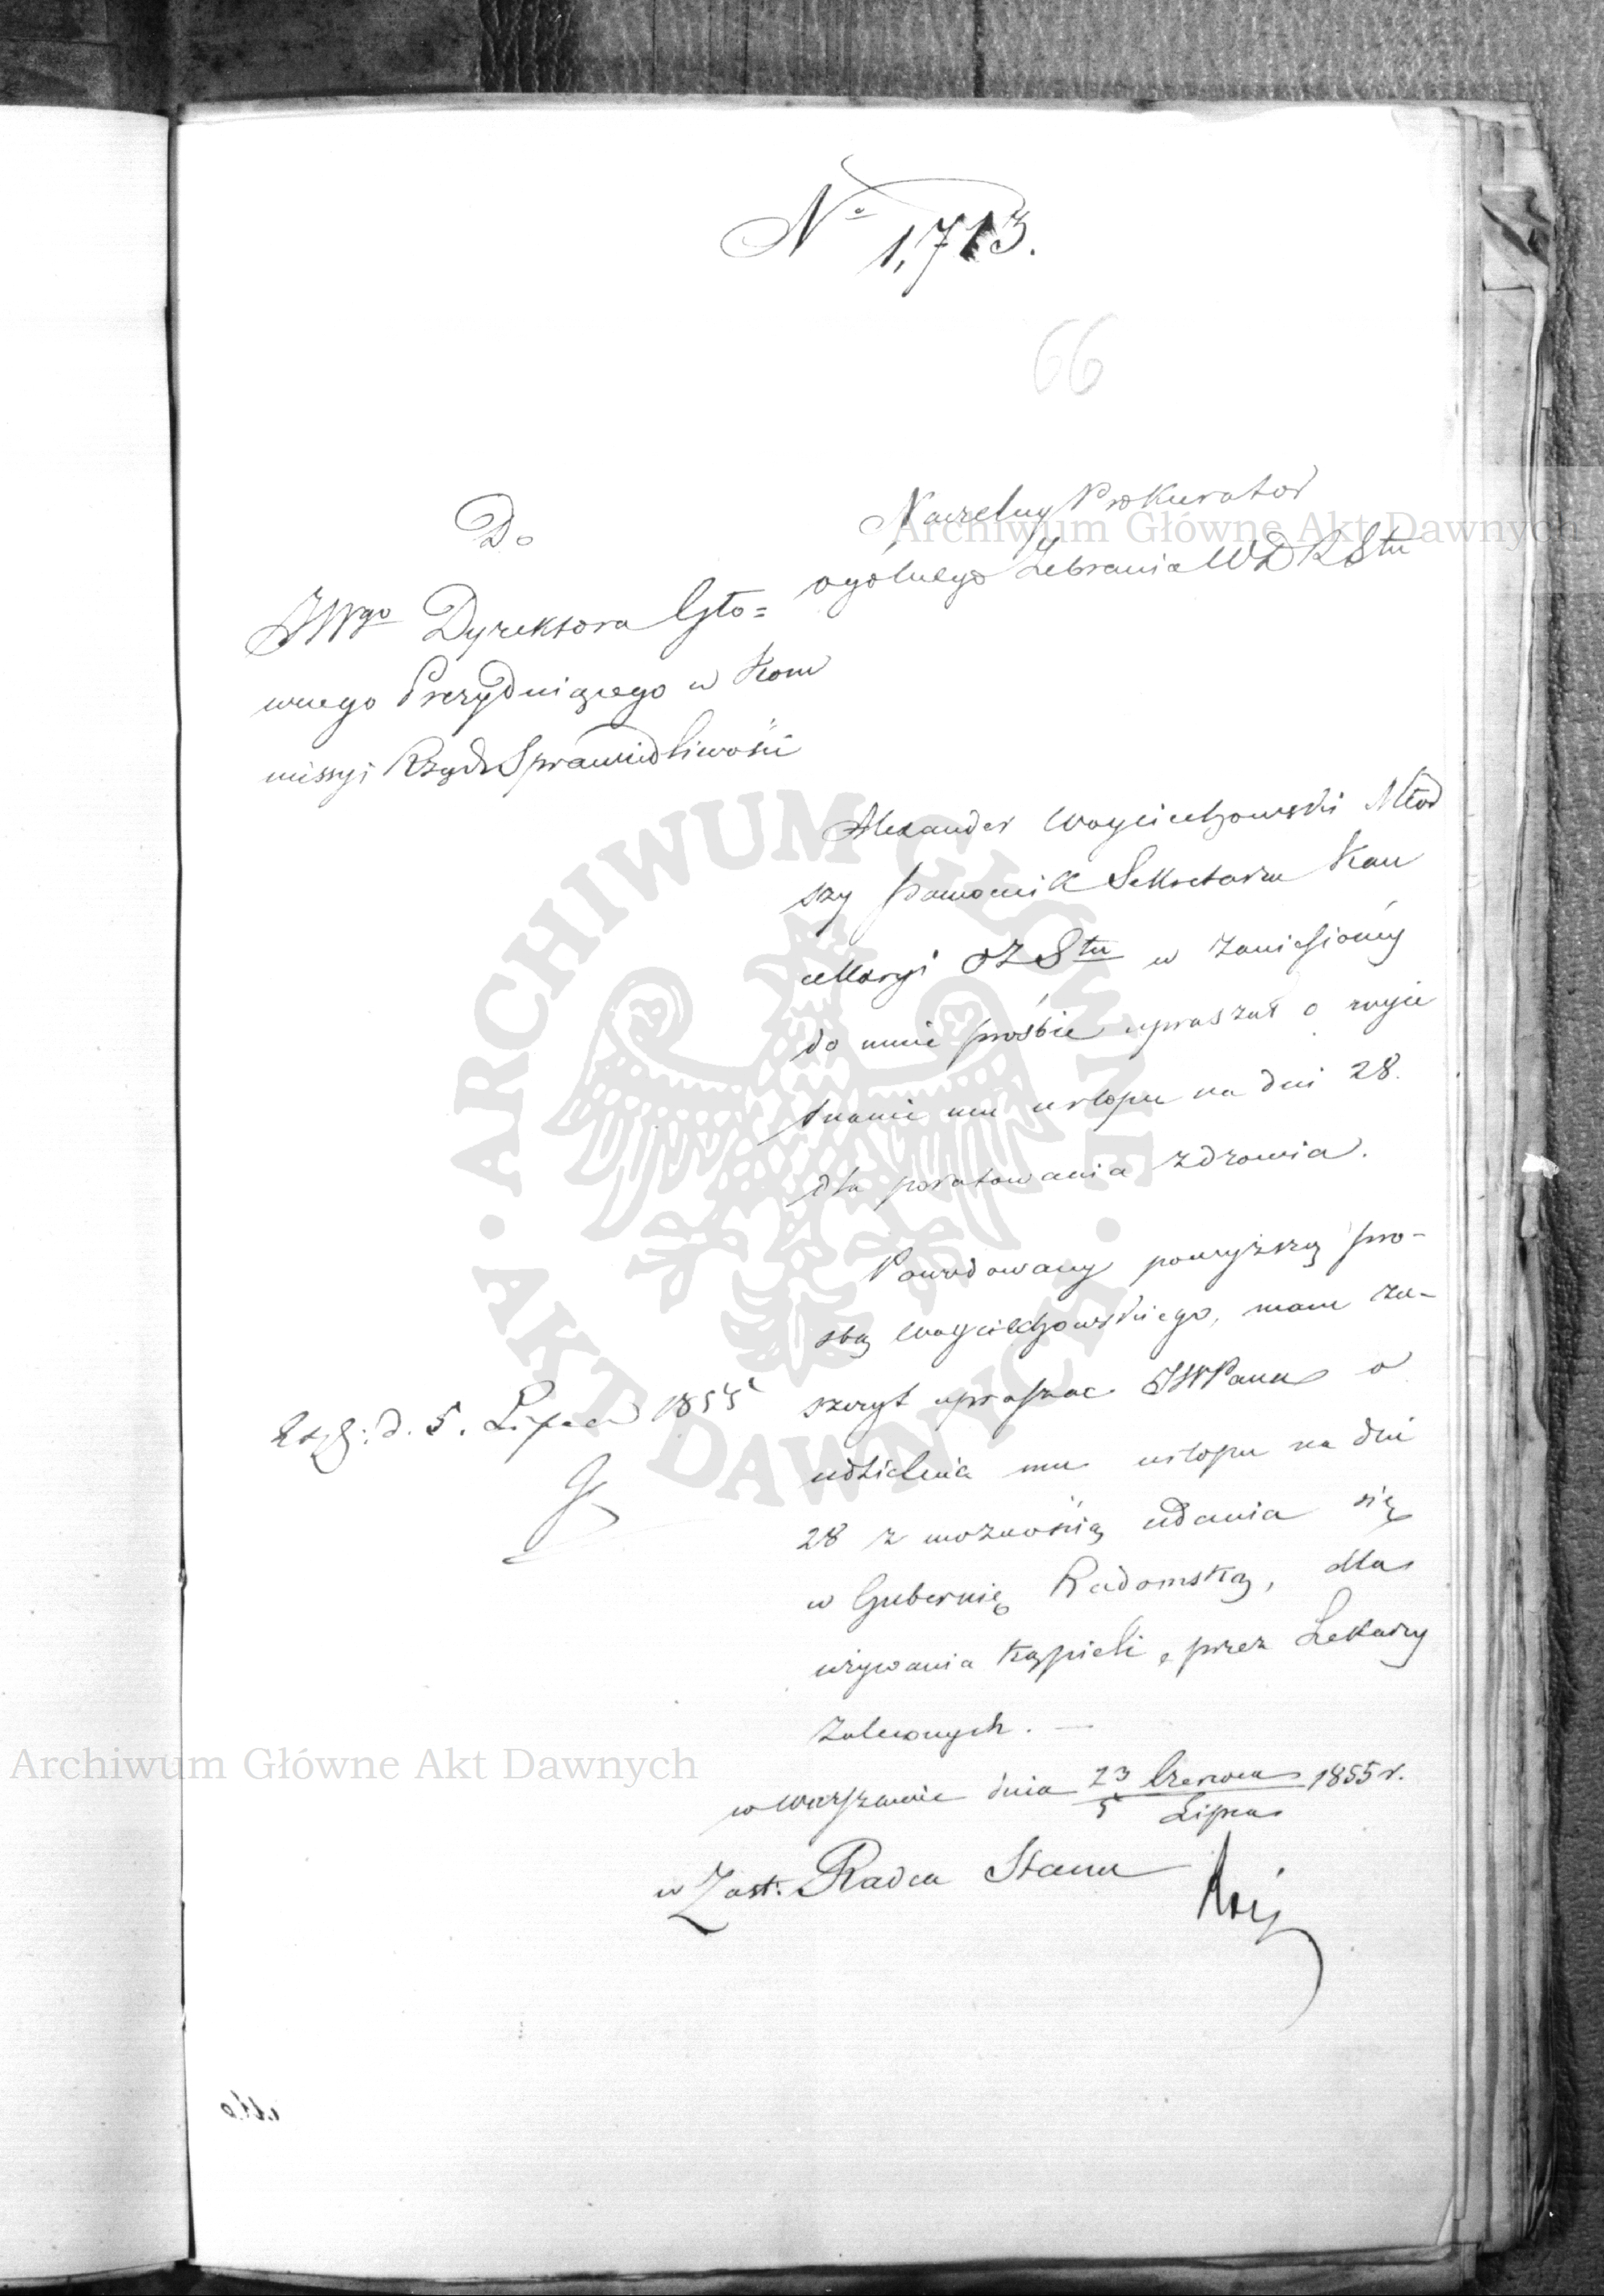 No 1,713.
66
Naczelny Prokurator
ogólnego Zebrania WDRStu
Do
JWgo Dyrektora Głó=
wnego Prezydującego w Kom
missyi Rząd Sprawiedliwości
Alexander Woyciechowski Młod
szy Pomocnik Sekretarza Kan
cellaryi OZStu w zaniesioney
do mnie prośbie upraszał o wyje
dnanie mu urlopu na dni 28.
dla poratowania zdrowia.
Powodowany powyższą pro-
śbą Woyciechowskiego, mam za-
szczyt upraszac JWPana o
udzielenie mu urlopu na dni
28 z możnością udania się
w Gubernię Radomską, dla
używania kąpieli, przez Lekarzy
zaleconych. —
d. 5. Lipca 1855
w Warszawie dnia 23 Czerwca 1855 r.
5 Lipca
w Zast. Radca Stanu
Archiwum Główne Akt Dawnych
ARCHIWUM GŁÓWNE · AKT DAWNYCH ·
Archiwum Główne Akt Dawnych